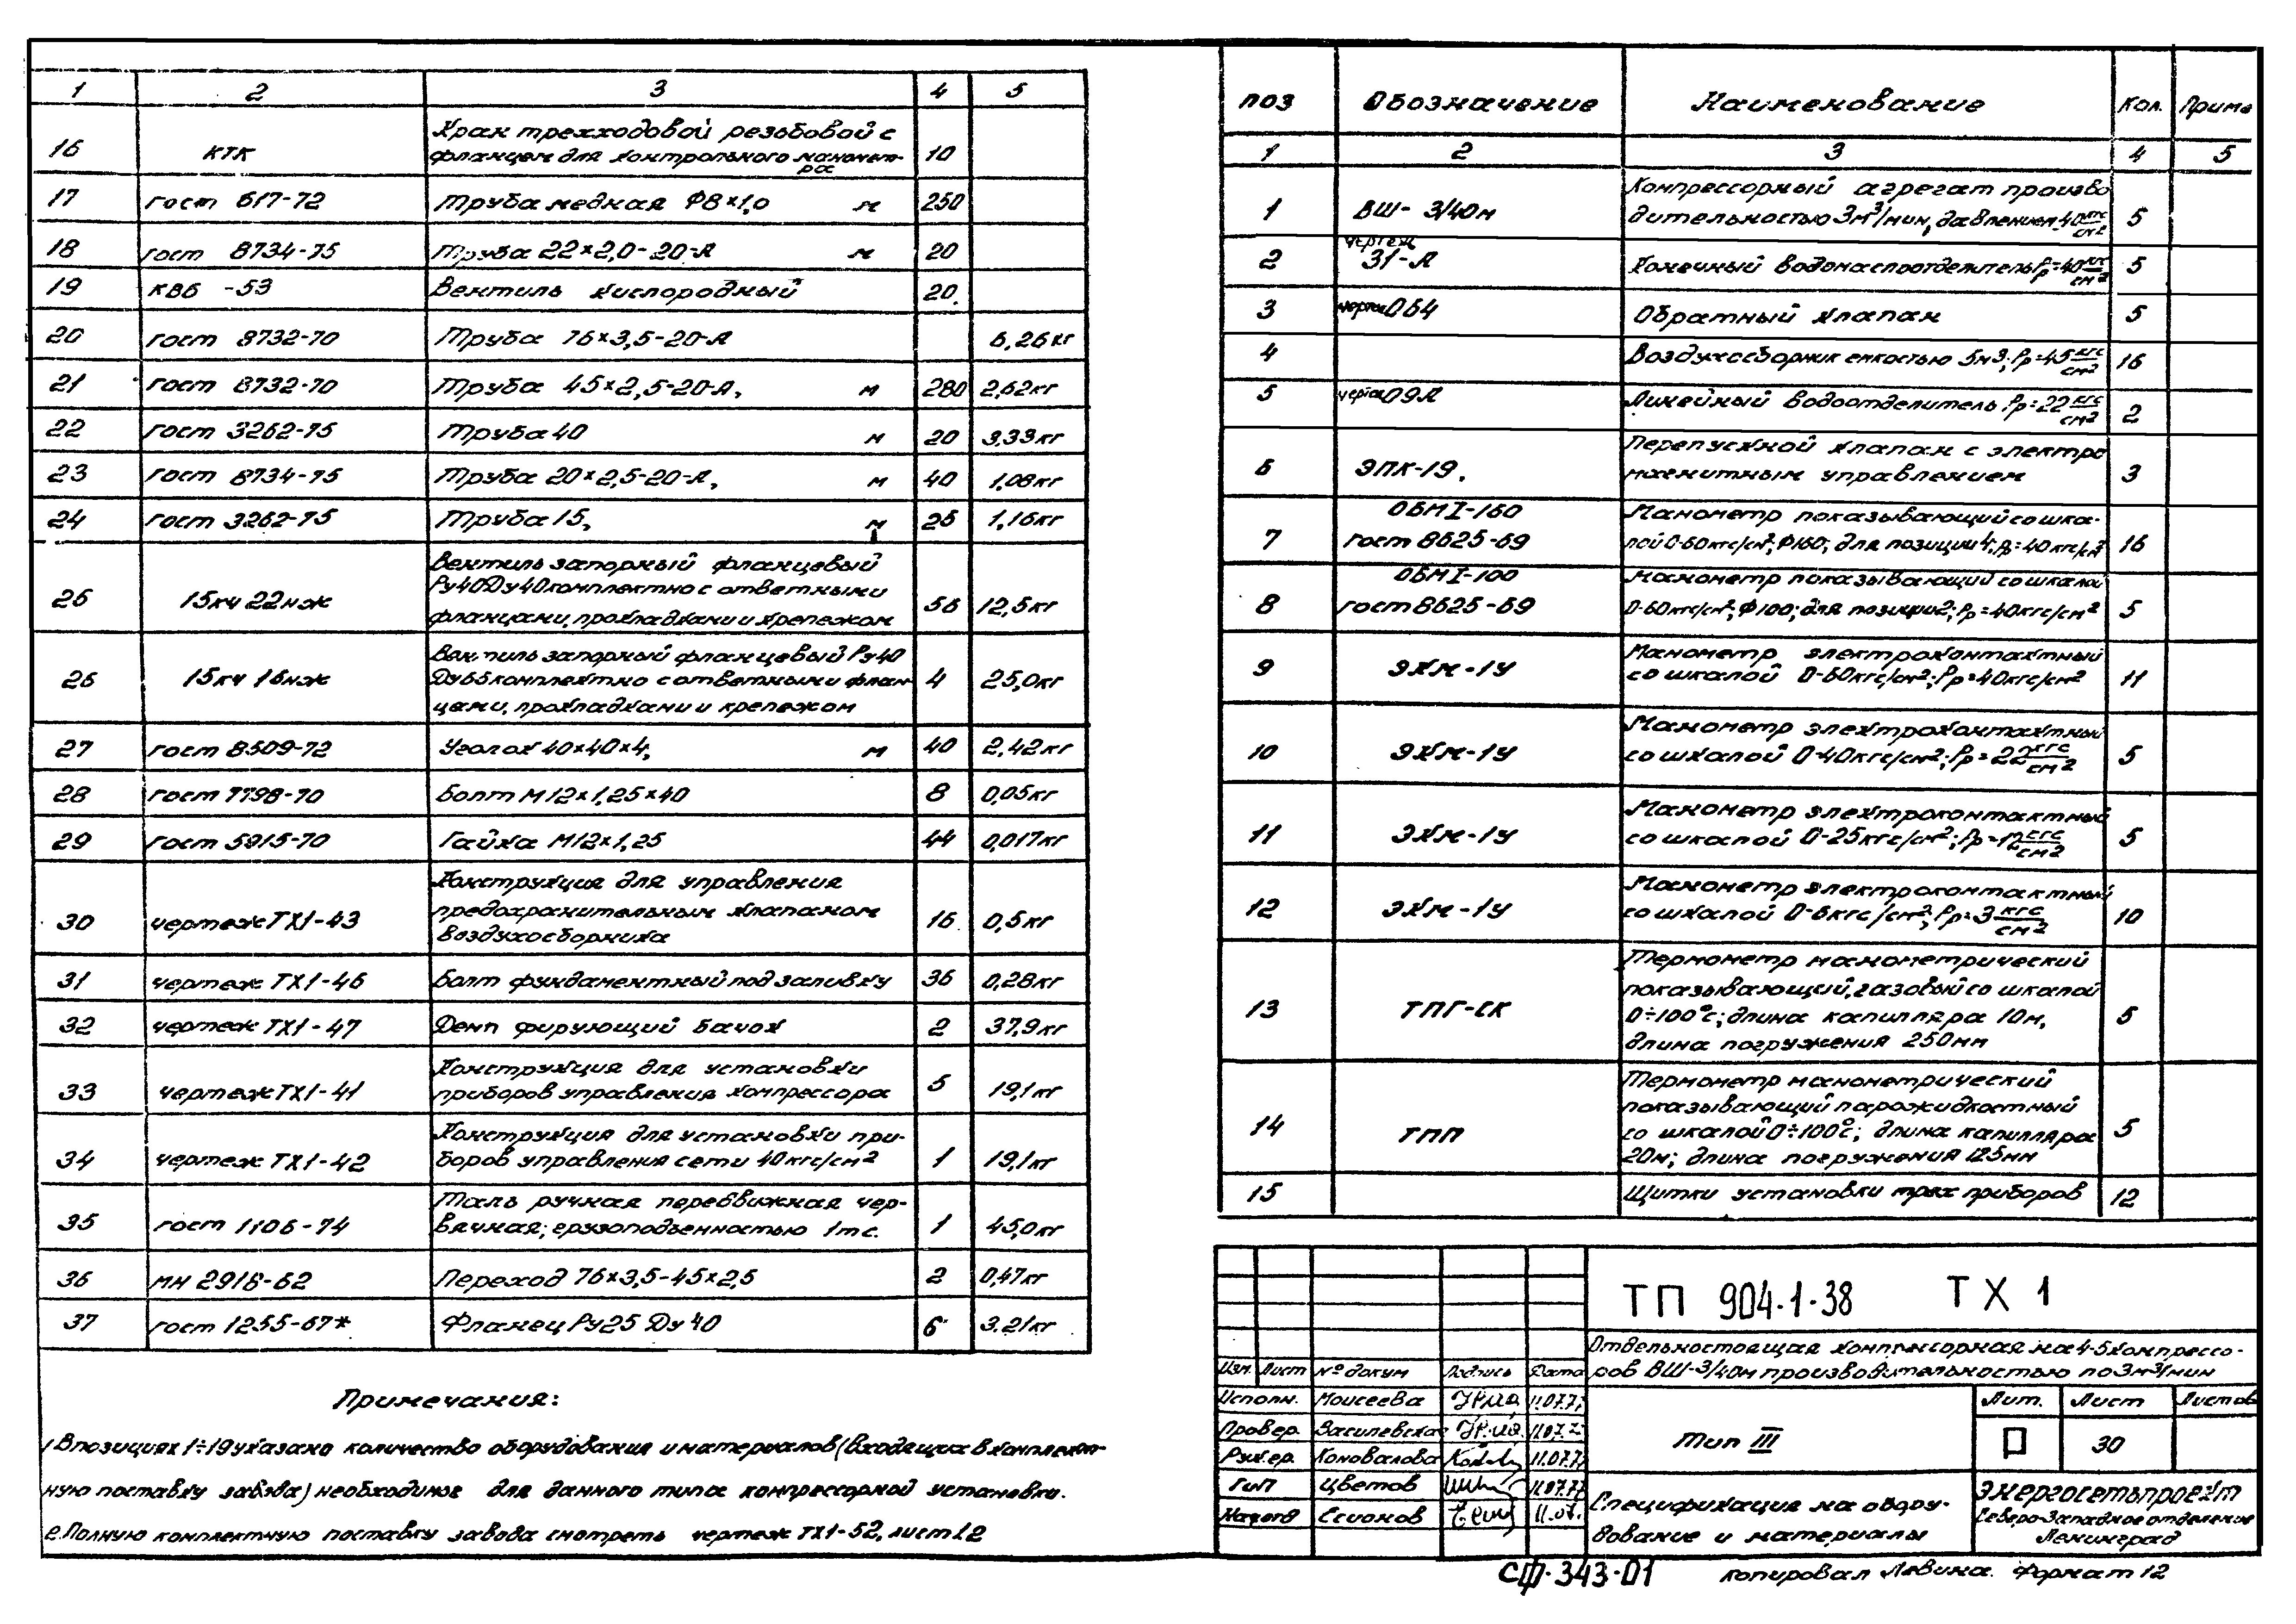 1 2 3 4 5
16 КТК Кран трехходовой резьбовой с
фланцем для контрольного маномет-
ра 10
17 гост 617-72 Труба медная Ф8×1,0 м 250
18 гост 8734-75 Труба 22×2,0-20-А м 20
19 КВ6-53 Вентиль кислородный 20
20 гост 8732-70 Труба 76×3,5-20-А 6,26кг
21 гост 8732-70 Труба 45×2,5-20-А, м 280 2,62кг
22 гост 3262-75 Труба 40 м 20 3,33кг
23 гост 8734-75 Труба 20×2,5-20-А, м 40 1,08кг
24 гост 3262-75 Труба 15, м 25 1,16кг
25 15кч 22нж Вентиль запорный фланцевый
Ру40Ду40 комплектно с ответными
фланцами, прокладками и крепежом 56 12,5кг
26 15кч 16нж Вентиль запорный фланцевый Ру40
комплектно с ответными флан-
цами, прокладками и крепежом 4 25,0кг
27 гост 8509-72 Уголок 40×40×4, м 40 2,42кг
28 гост 7798-70 Болт М12×1,25×40 8 0,05кг
29 гост 5915-70 Гайка М12×1,25 44 0,017кг
30 чертеж ТХ1-43 Конструкция для управления
предохранительным клапаном
воздухосборника 16 0,5кг
31 чертеж ТХ1-46 Болт фундаментный под заливку 36 0,28кг
32 чертеж ТХ1-47 Демпфирующий бачок 2 37,9кг
33 чертеж ТХ1-41 Конструкция для установки
приборов управления компрессора 5 19,1кг
34 чертеж ТХ1-42 Конструкция для установки при-
боров управления сети 40кгс/см² 1 19,1кг
35 гост 1106-74 Таль ручная передвижная чер-
вячная; грузоподъемностью 1тс. 1 45,0кг
36 мн 2918-62 Переход 76×3,5-45×2,5 2 0,47кг
37 гост 1255-67* Фланец Ру25 Ду40 6 3,21кг
Примечания:
1 В позициях 1÷19 указано количество оборудования и материалов (входящих в комплект-
ную поставку завода) необходимое для данного типа компрессорной установки.
2. Полную комплектную поставку завода смотреть чертеж ТХ1-52, лист 1,2
поз Обозначение Наименование Кол. Прим
1 2 3 4 5
1 ВШ-3/40м Компрессорный агрегат произво
дительностью 3м³/мин, давлением 40 кгс/см² 5
2 чертеж
31-А Конечный водомаслоотделитель Рр=40 кгс/см² 5
3 чертеж 064 Обратный клапан 5
4 Воздухосборник емкостью 5м3; Рр=45 кгс/см² 16
5 чертеж 09А Линейный водоотделитель; Рр=22 кгс/см² 2
6 ЭПК-19. Перепускной клапан с электро
магнитным управлением 3
7 ОБМ I-160
гост 8625-69 Манометр показывающий со шка-
лой 0-60кгс/см²; Ф160; для позиции 4; Рр=40кгс/см² 16
8 ОБМ I-100
гост 8625-69 Манометр показывающий со шкалой
0-60кгс/см²; Ф100; для позиции 2; Рр=40кгс/см² 5
9 ЭКМ-1У Манометр электроконтактный
со шкалой 0-60кгс/см²; Рр=40кгс/см² 11
10 ЭКМ-1У Манометр электроконтактный
со шкалой 0-40кгс/см²; Рр=22 кгс/см² 5
11 ЭКМ-1У Манометр электроконтактный
со шкалой 0-25кгс/см²; кгс/см² 5
12 ЭКМ-1У Манометр электроконтактный
со шкалой 0-6кгс/см²; Рр=3 кгс/см² 10
13 ТПГ-СК Термометр манометрический
показывающий, газовый со шкалой
0÷100°С; длина капилляра 10м,
длина погружения 250мм 5
14 ТПП Термометр манометрический
показывающий парожидкостный
со шкалой 0÷100°С; длина капилляра
20м; длина погружения 125мм 5
15 Щитки установки трех приборов 12
ТП 904-1-38 ТХ 1
Отдельностоящая компрессорная на 4-5 компрессо-
ров ВШ-3/40м производительностью по 3м³/мин
Изм. Лист № докум Подпись Дата
Исполн. Моисеева 11.07.77
Провер. Василевская 11.07.77
Рук.гр. Коновалова 11.07.77
ГиП Цветов 11.07.77
Нач.отд Семонов 11.07.
Тип III
Лит. Лист Листов
Р 30
Спецификация на обору-
дование и материалы
Энергосетьпроект
Северо-Западное отделение
Ленинград
СФ-343-01 копировал Лявина. Формат 12